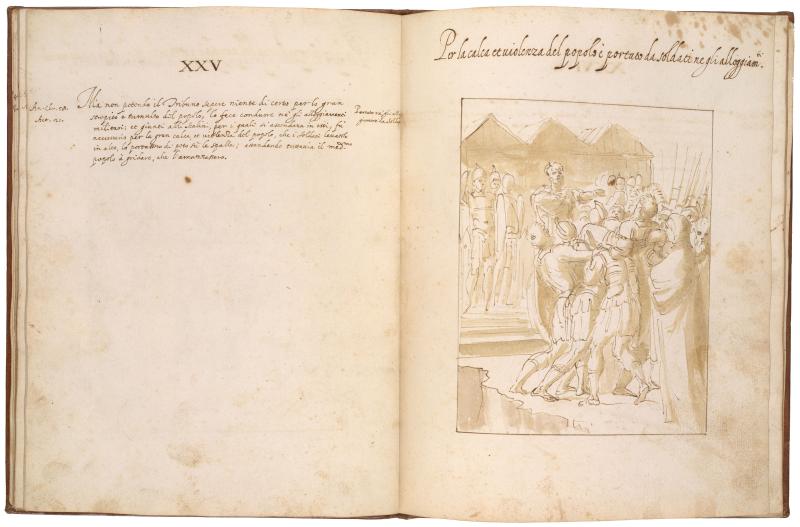 XXV
An. Ch. 58.
Act. 21.
Ma non potendo il Tribuno sapere niente di certo per lo gran
strepito e tumulto del popolo, lo fece condurre ne' gli alloggiamenti
militari: et giunti alli scalini, per i quali si ascendeva in essi, fù
necessario per la gran calca et violenza del popolo, che i soldati levatolo
in alto, lo portassero di peso sù le spalle; attendendo tuttavia il med.mo
popolo à gridare, che l'ammazzassero.
Portato ne' gli
Per la calca et violenza del popolo è portato da soldati ne gli alloggiam.ti